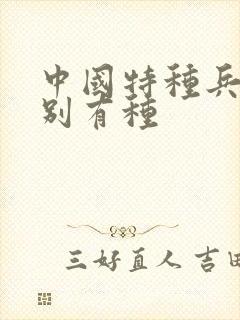 中國特種兵
別有種
三好直人 吉田